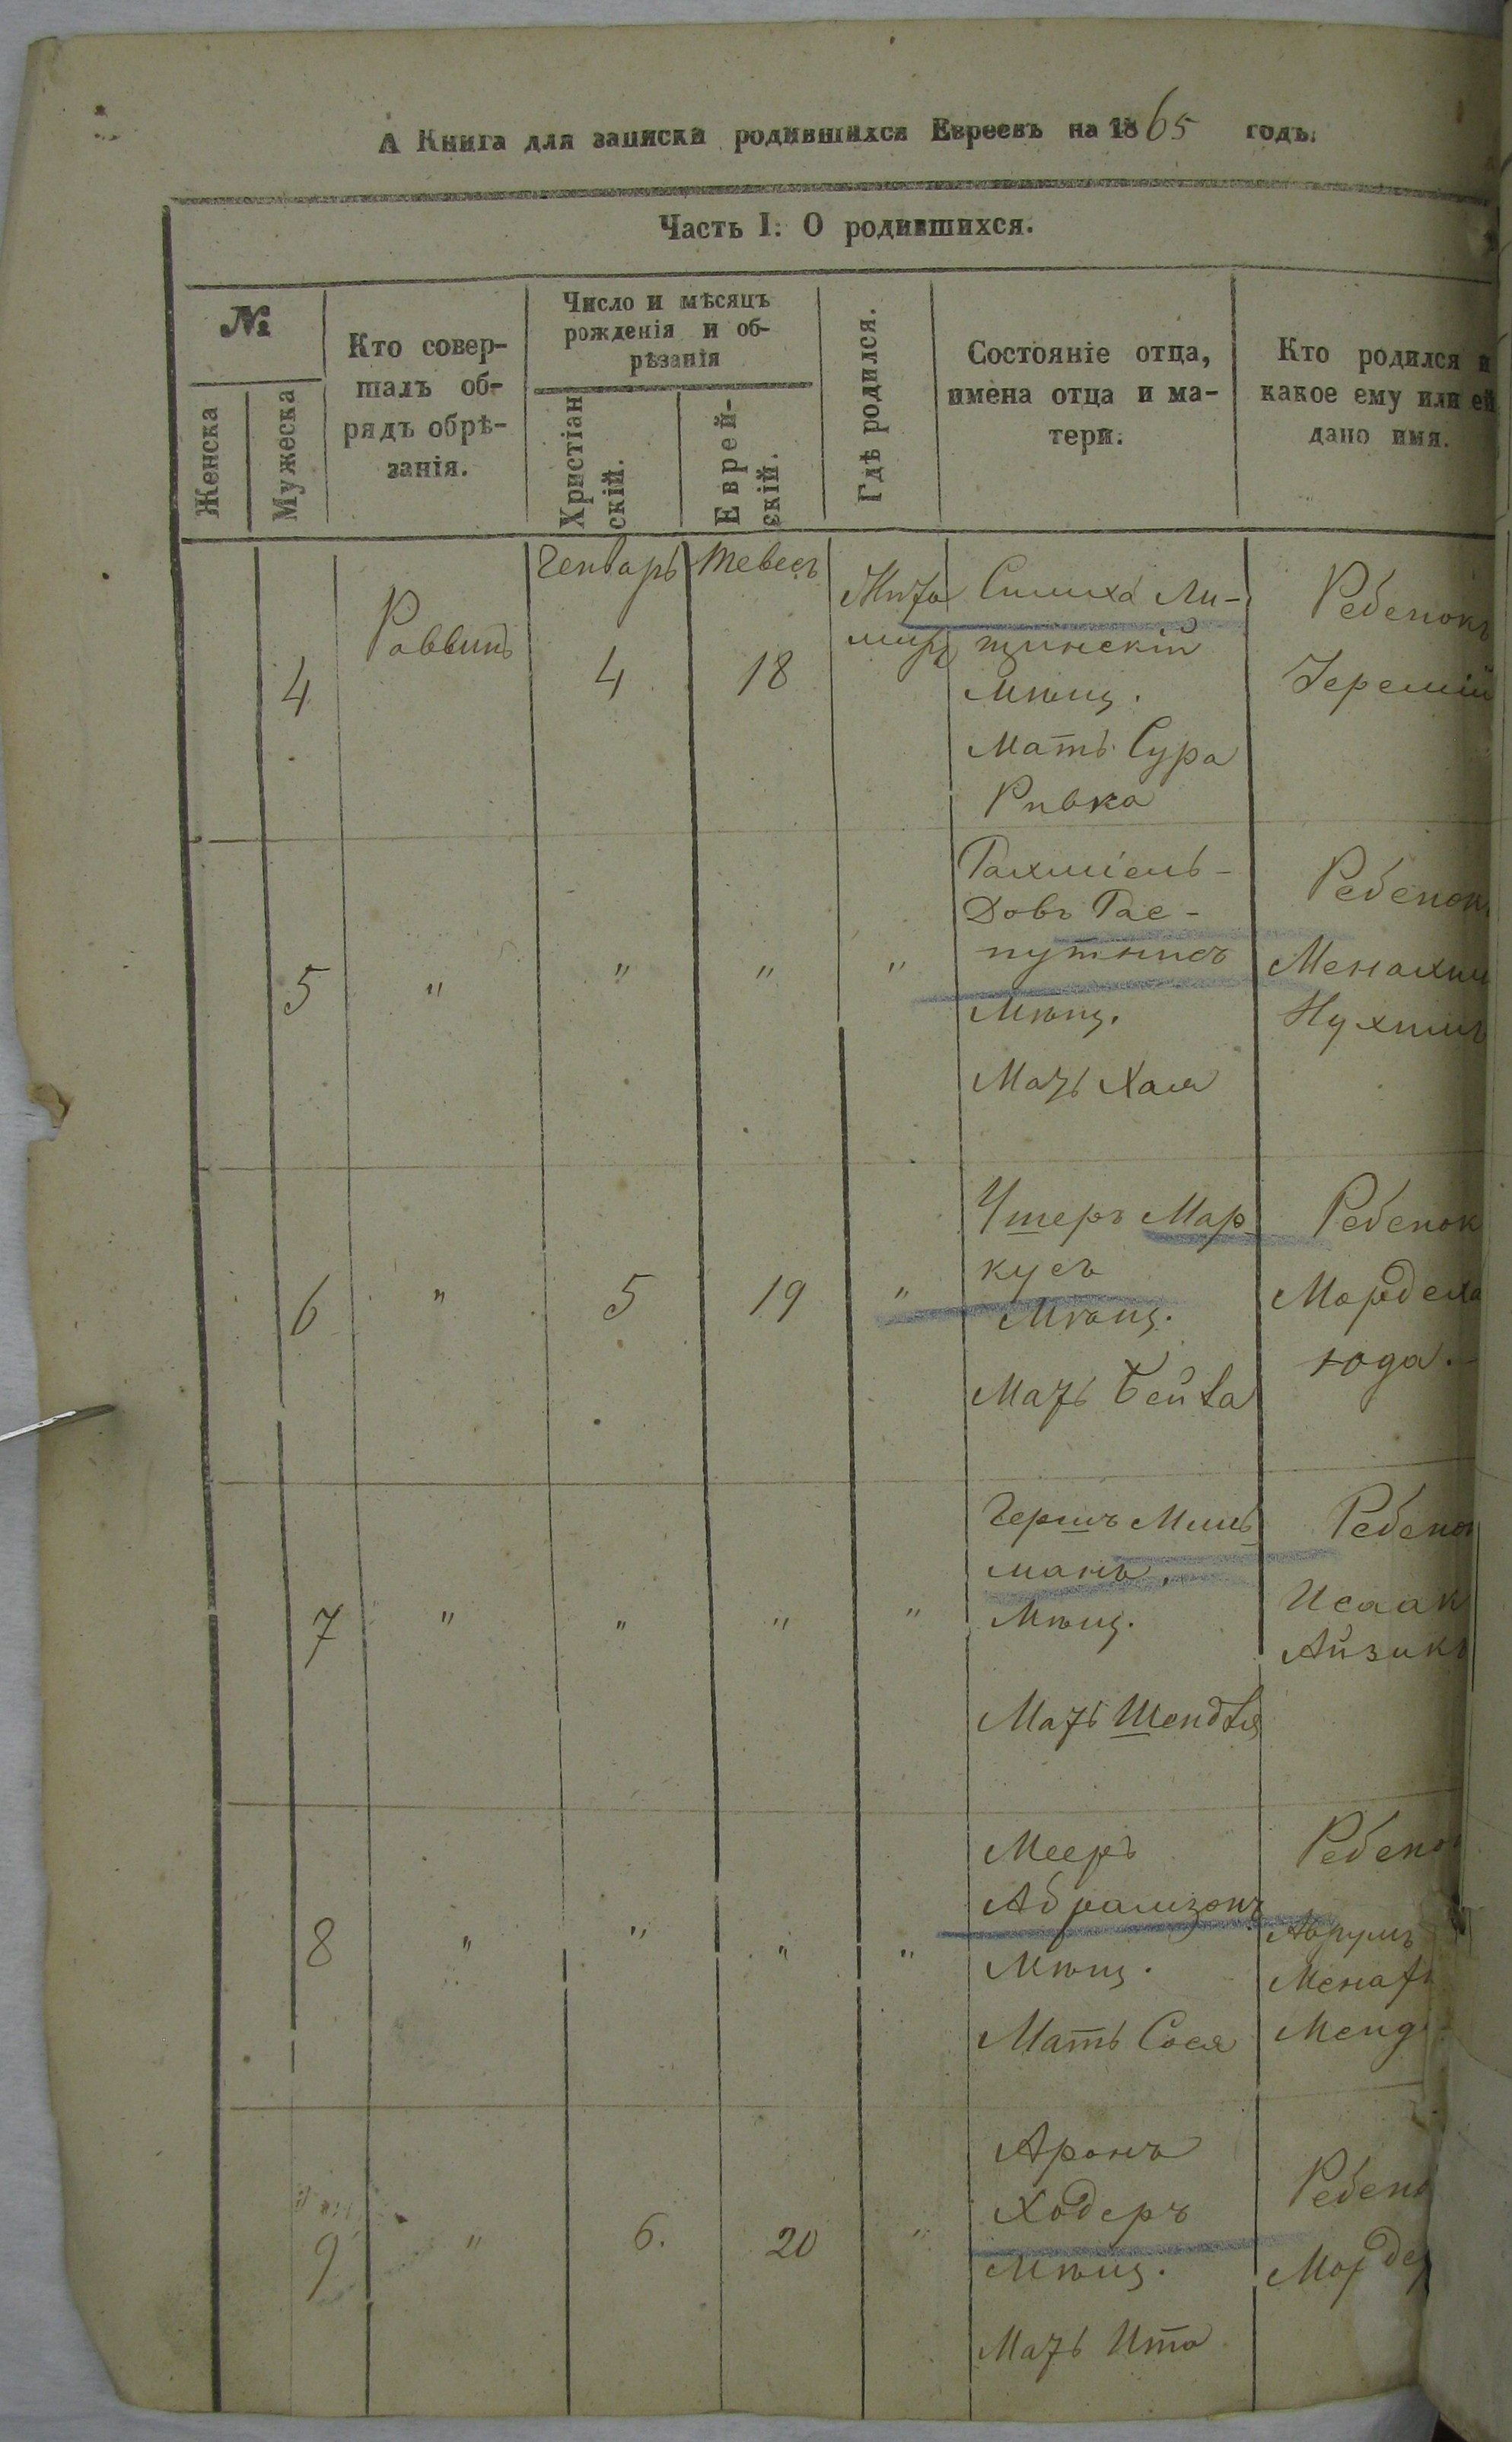 А Книга для записки родившихся Евреевъ на 1865 годъ.
Часть I. О родившихся.
№
Женска
Мужеска
Кто совер-
шалъ об-
рядъ обрѣ-
занія.
Число и мѣсяцъ
рожденія и об-
рѣзанія
Христіан
скій.
Еврей-
скій.
Гдѣ родился.
Состояніе отца,
имена отца и ма-
тери.
Кто родился и
какое ему или ей
дано имя.
Генварь
Тевесъ
4
Раввинъ
4
18
Жито
миръ
Симха Ли-
щинскій
Мѣщ.
Мать Сура
Ривка
Ребенокъ
Іеремій
5
"
"
"
"
Рахміель-
Довъ Рас-
путнисъ
Мѣщ.
Мать Хая
Ребенокъ
Менахим
Нухимъ
6
"
5
19
"
Ушеръ Мар
кусъ
Мѣщ.
Мать Бейла
Ребенок
Мордеха
Юда.
7
"
"
"
"
Гершъ Миль
манъ.
Мѣщ.
Мать Шендля
Ребено
Исаак
Айзикъ
8
"
"
"
"
Мееръ
Абрамзонъ
Мѣщ.
Мать Сося
Ребено
Аврумъ
Менд
9
"
6.
20
"
Аронъ
Ходеръ
Мѣщ.
Мать Ита
Ребено
Морде